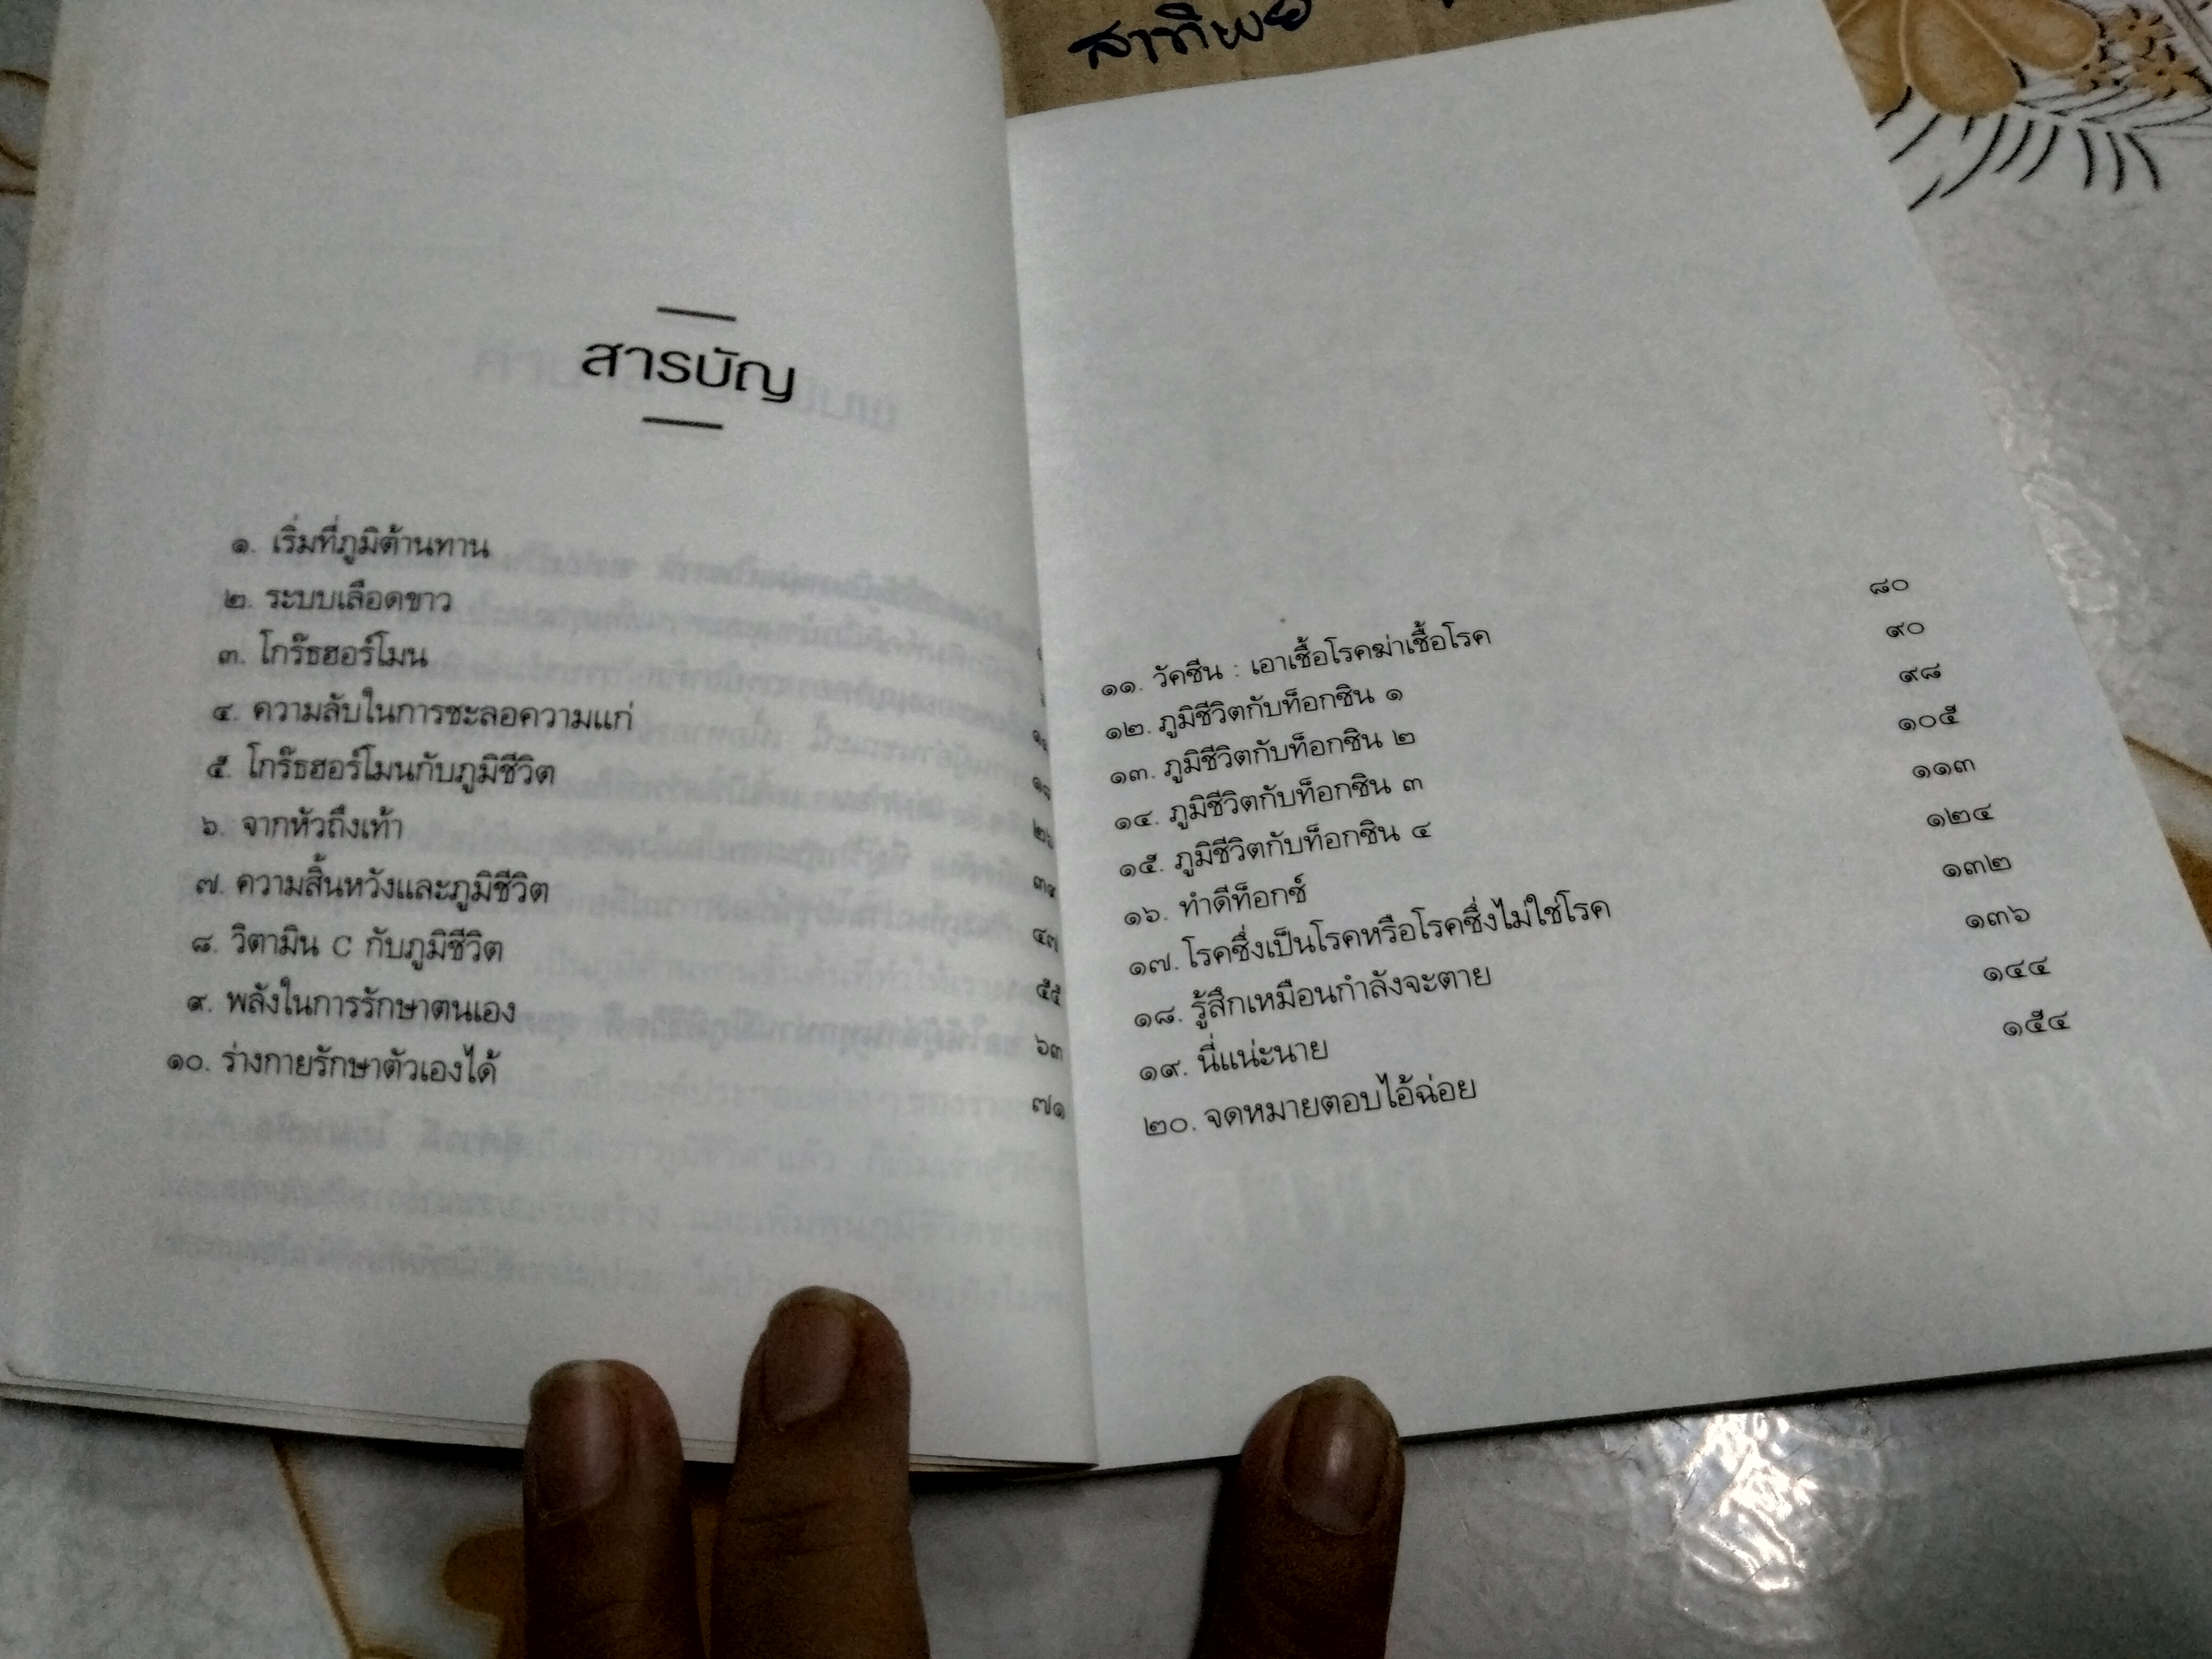 สารบัญ
๑. เริ่มที่ภูมิต้านทาน
๒. ระบบเลือดขาว
๓. โกร๊ธฮอร์โมน
๔. ความลับในการชะลอความแก่
๕. โกร๊ธฮอร์โมนกับภูมิชีวิต
๖. จากหัวถึงเท้า ๒๖
๗. ความสิ้นหวังและภูมิชีวิต
๘. วิตามิน C กับภูมิชีวิต ๔๗
๙. พลังในการรักษาตนเอง ๖๓
๑๐. ร่างกายรักษาตัวเองได้ ๗๑
๑๑. วัคซีน : เอาเชื้อโรคฆ่าเชื้อโรค ๘๐
๑๒. ภูมิชีวิตกับท็อกซิน ๑ ๙๐
๑๓. ภูมิชีวิตกับท็อกซิน ๒ ๙๘
๑๔. ภูมิชีวิตกับท็อกซิน ๓ ๑๐๕
๑๕. ภูมิชีวิตกับท็อกซิน ๔ ๑๑๓
๑๖. ทำดีท็อกซ์ ๑๒๔
๑๗. โรคซึ่งเป็นโรคหรือโรคซึ่งไม่ใช่โรค ๑๓๒
๑๘. รู้สึกเหมือนกำลังจะตาย ๑๓๖
๑๙. นี่แน่ะนาย ๑๔๔
๒๐. จดหมายตอบไอ้ฉ่อย ๑๕๔